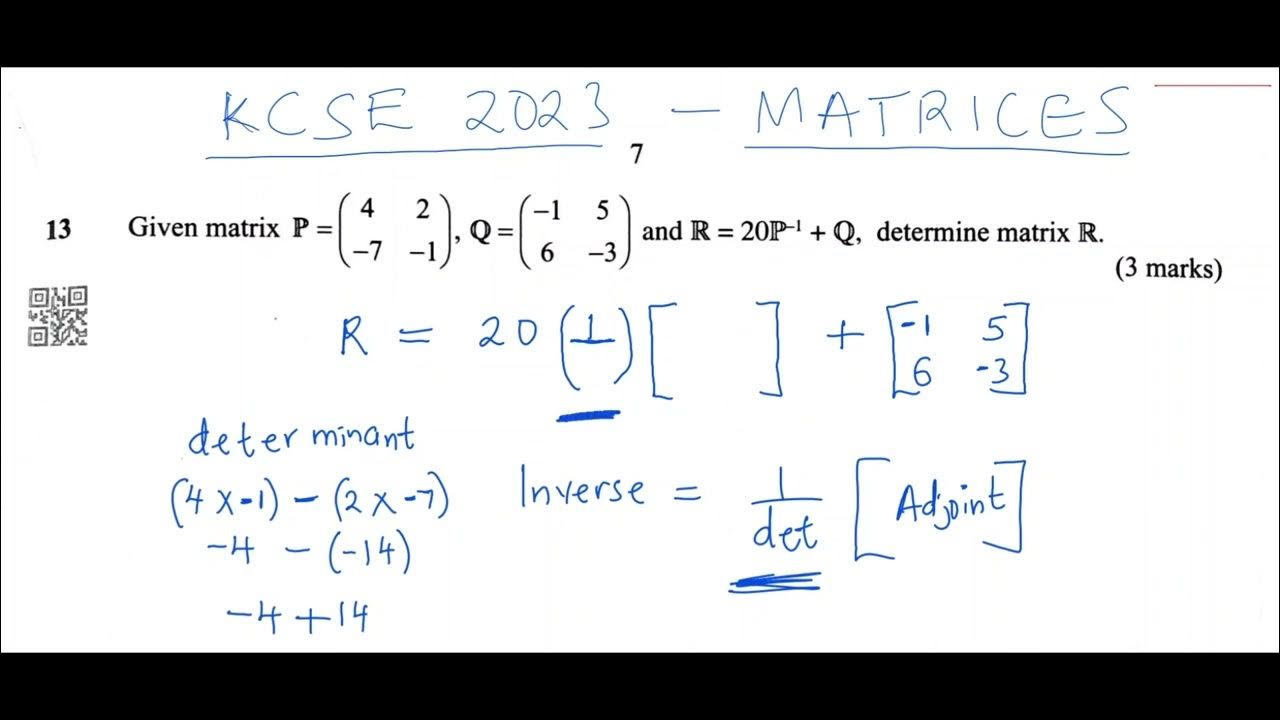 KCSE 2023 — MATRICES
7
13 Given matrix P = (4 2 -7 -1), Q = (-1 5 6 -3) and R = 20P⁻¹ + Q, determine matrix R.
(3 marks)
R = 20 (1/ ) [ ] + [-1 5 6 -3]
determinant
(4 x -1) - (2 x -7)
Inverse = 1/det [Adjoint]
-4 - (-14)
-4 + 14